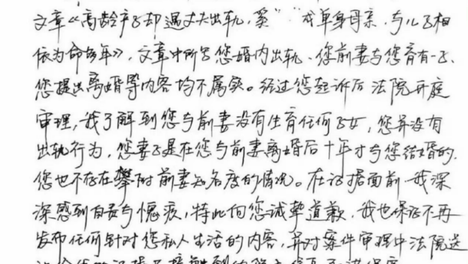 文章《高龄产子却遇丈夫出轨,奚
单身母亲,与儿子相
依为命古年》,文章中所写您婚内出轨、您前妻与您育有一子、
您提出离婚等内容均不属实。经过您起诉后法院开庭
审理,我了解到您与前妻没有生育任何子女,您并没有
出轨行为,您妻子是在您与前妻离婚后十年才与您结婚的,
您也不存在攀附前妻知名度的情况。在证据面前,我深
深感到自责与愧疚,特此向您诚挚道歉,我也保证不再
发布任何针对您私人生活的内容,并对案件审理中法院送